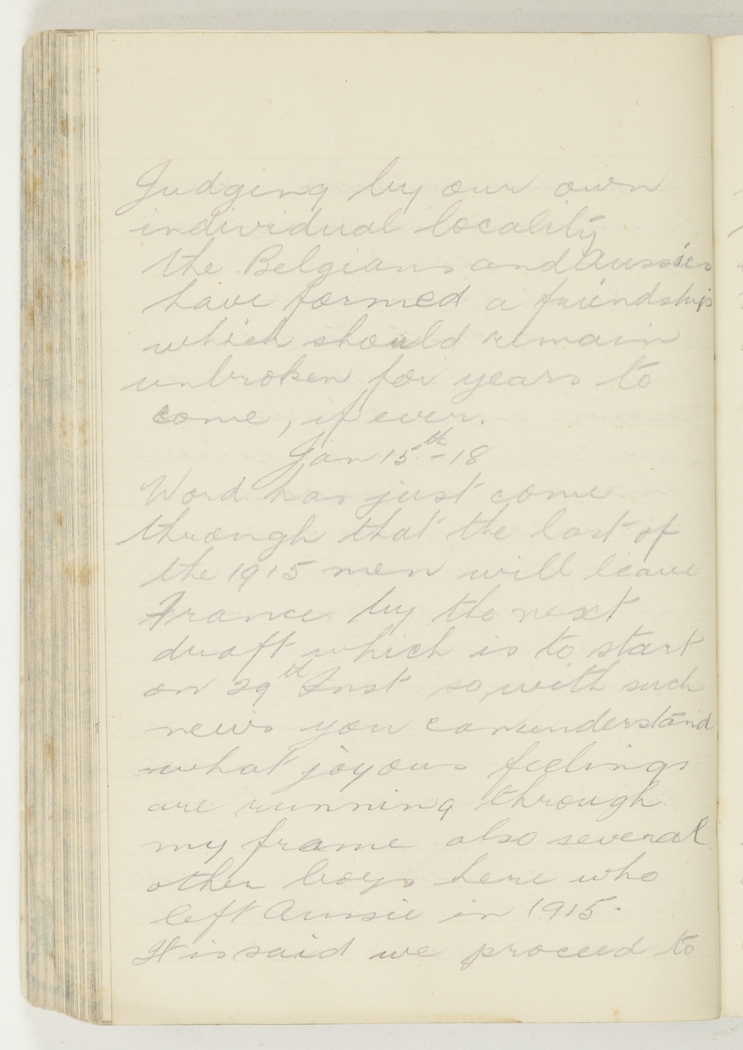 Judging by our own
individual locality
the Belgians and Aussies
have formed a friendship
which should remain
unbroken for years to
come, if ever.
Jan 15th-18
Word has just come
through that the last of
the 1915 men will leave
France by the next
draft which is to start
on 29th Inst so, with such
news you can understand
what joyous feelings
are running through
my frame also several
other boys here who
left Aussie in 1915.
It is said we proceed to